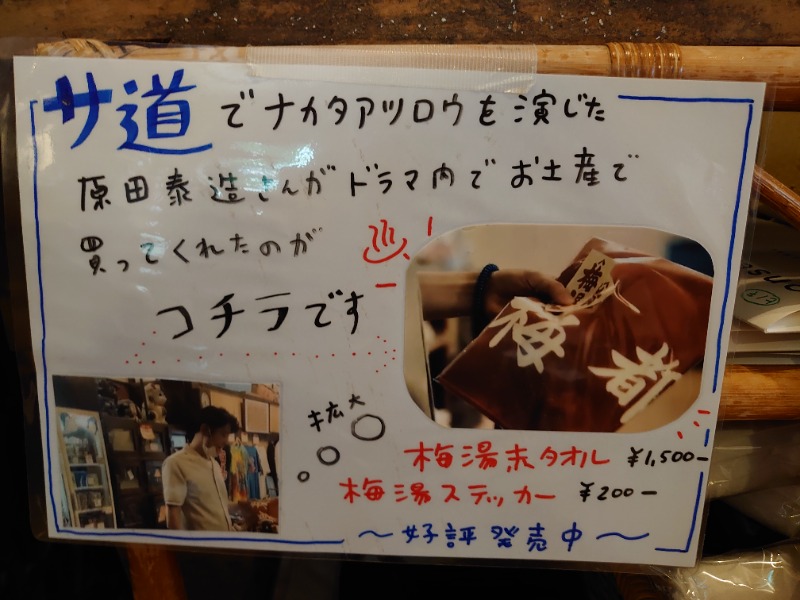 サ道でナカタアツロウを演じた
原田泰造さんがドラマ内でお土産で
買ってくれたのが
コチラです
拡大
梅湯
梅
都
梅湯赤タオル ¥1,500-
梅湯ステッカー ¥200-
〜好評発売中〜